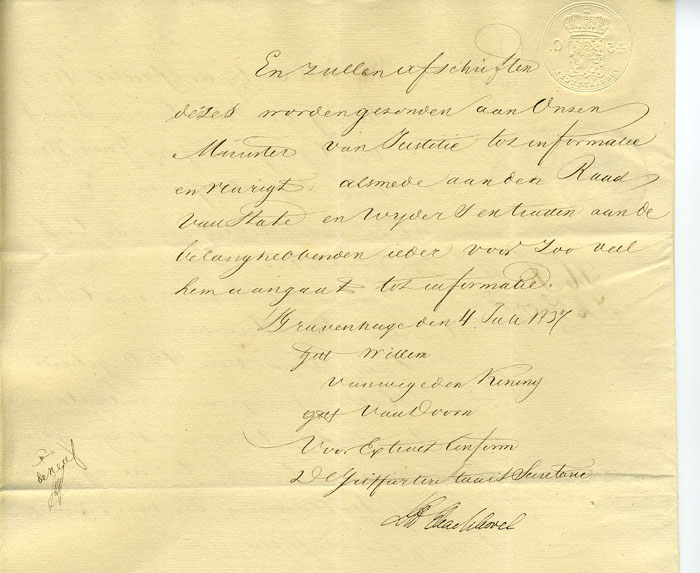 En zullen afschriften
dezes worden gezonden aan Onzen
Minister van Justitie tot informatie
en narigt alsmede aan den Raad
van State en wyders Extracten aan de
belanghebbenden ieder voor zoo veel
hem aangaat tot informatie.
's Gravenhage den 4 Juli 1837
get Willem
van wege den Koning
get Van Doorn
Voor Extract Conform
De Griffier ter Staats Secretarie